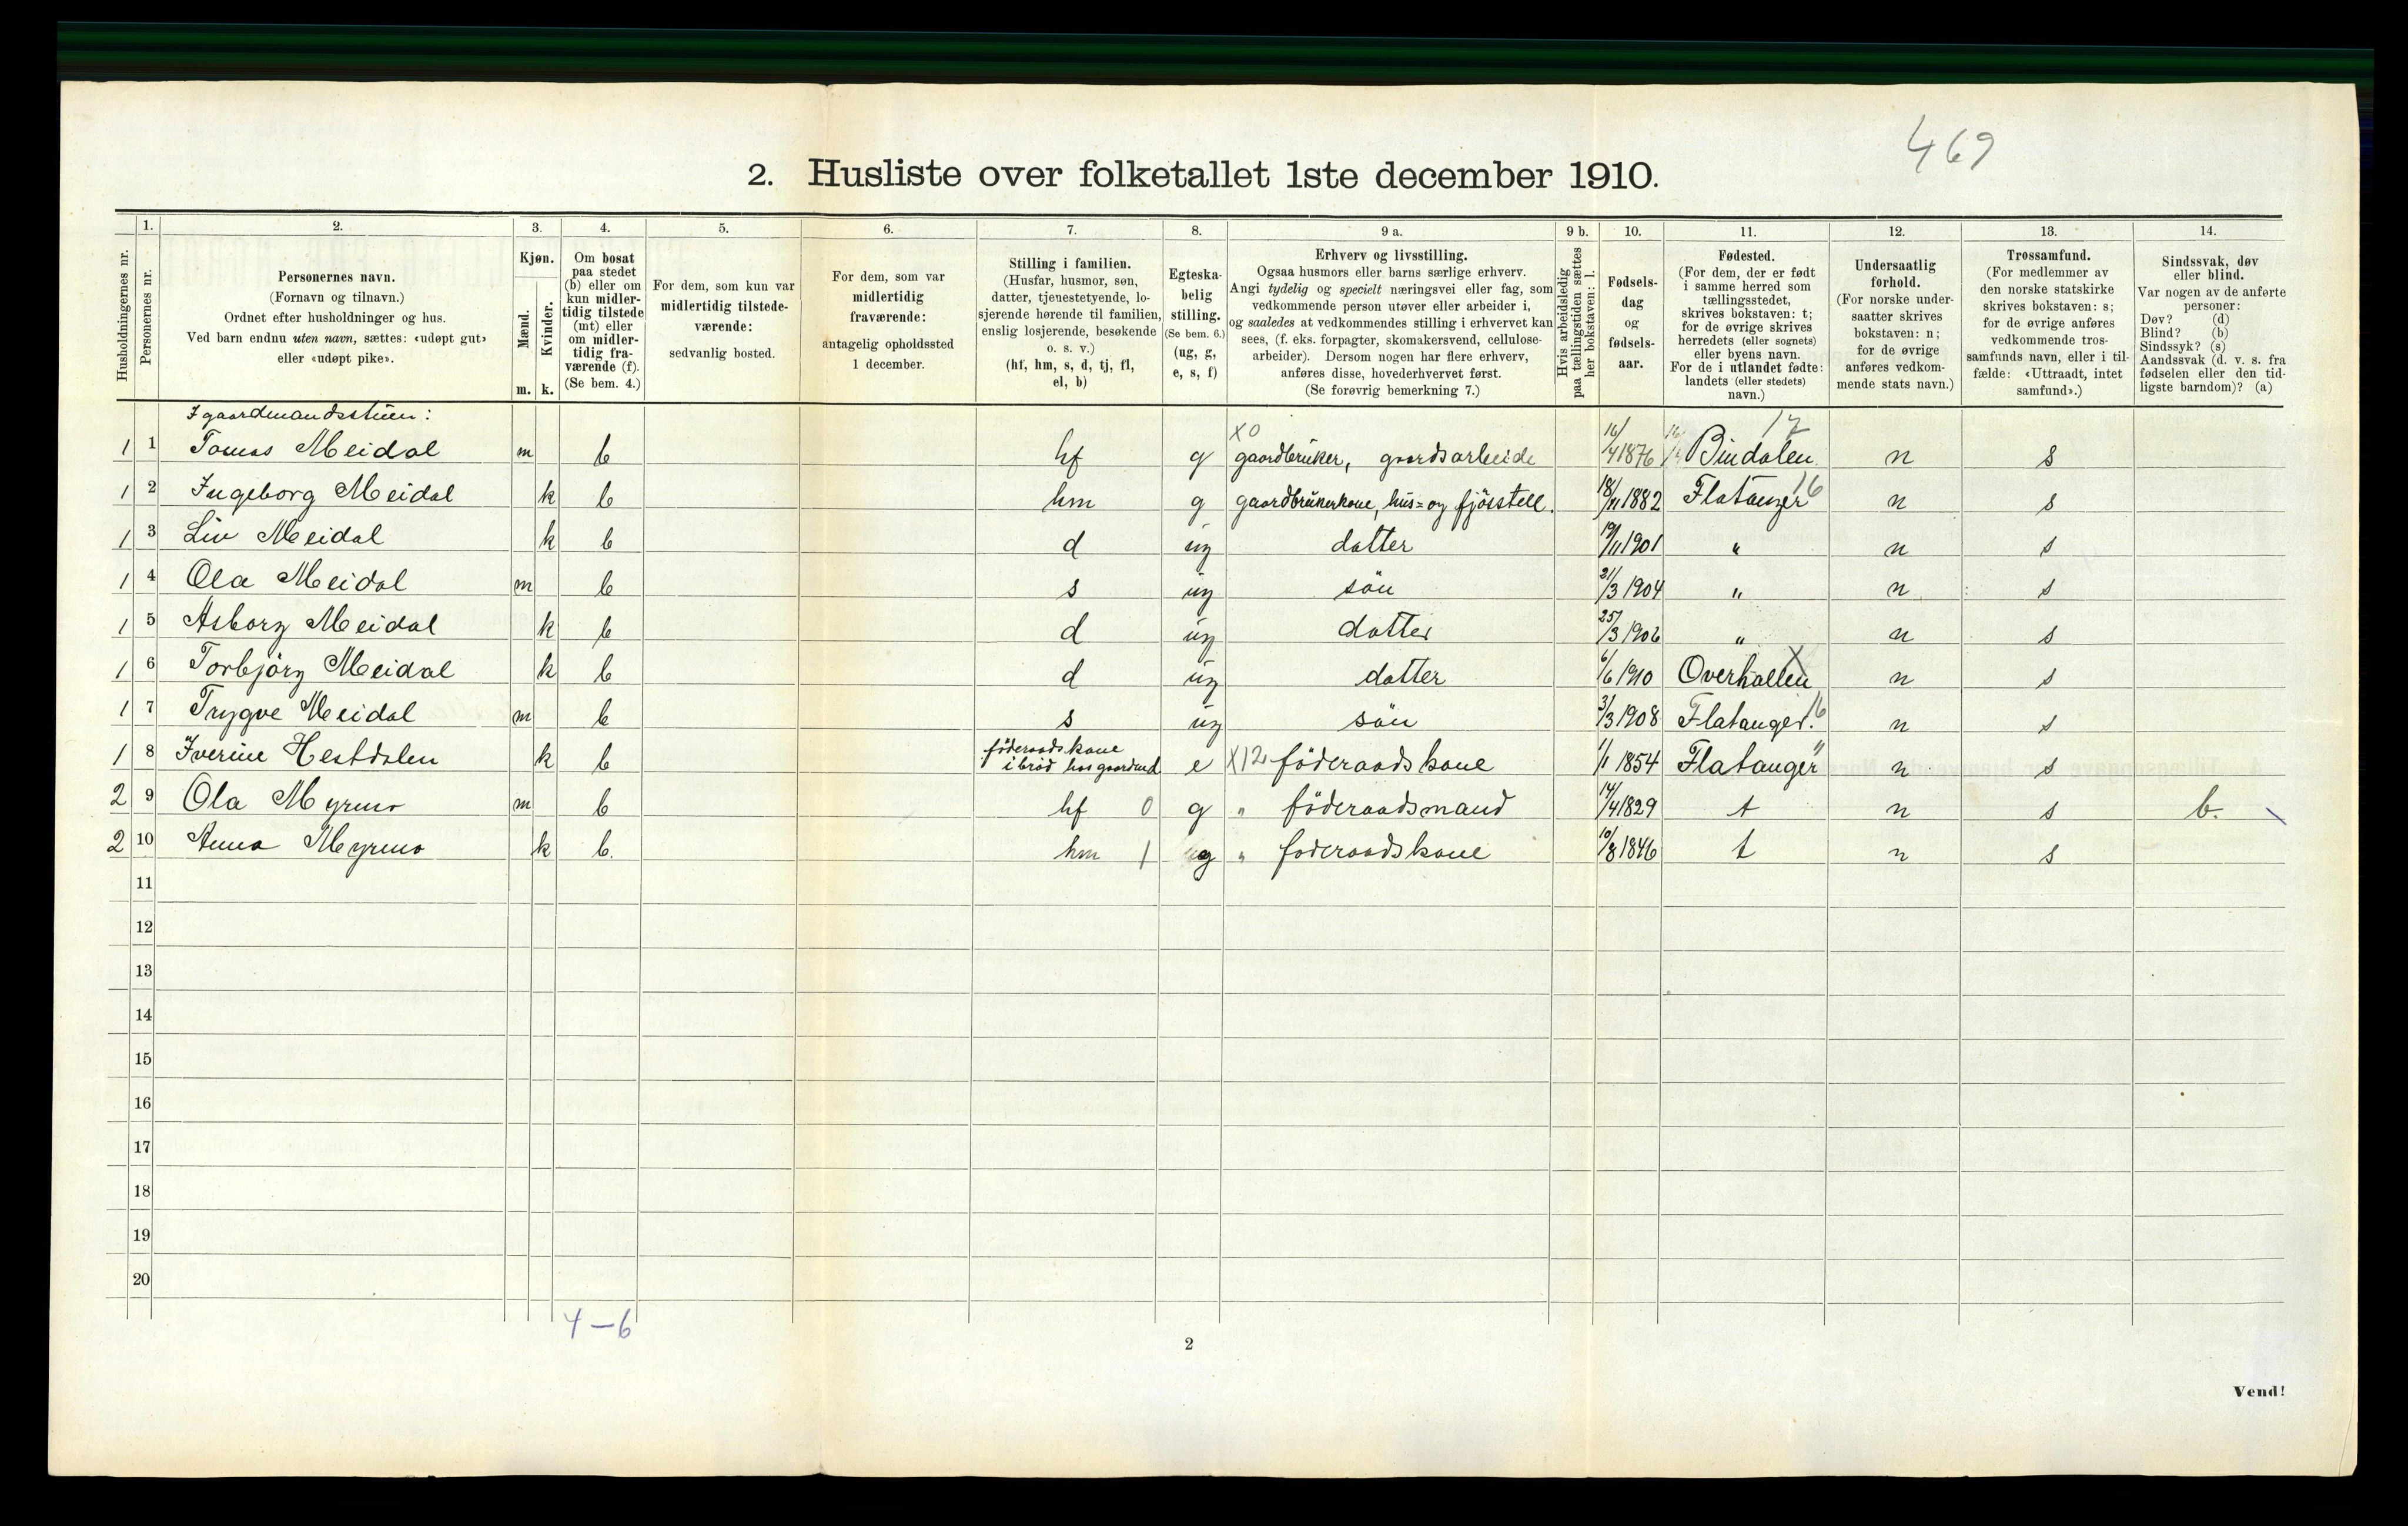 469
2. Husliste over folketallet 1ste december 1910.
Husholdningernes nr.
1.
Personernes nr.
2.
Personernes navn.
(Fornavn og tilnavn.)
Ordnet efter husholdninger og hus.
Ved barn endnu uten navn, sættes: «udøpt gut»
eller «udøpt pike».
3.
Kjøn.
Mænd.
Kvinder.
m. k.
4.
Om bosat
paa stedet
(b) eller om
kun midler-
tidig tilstede
(mt) eller
om midler-
tidig fra-
værende (f).
(Se bem. 4.)
5.
For dem, som kun var
midlertidig tilstede-
værende:
sedvanlig bosted.
6.
For dem, som var
midlertidig
fraværende:
antagelig opholdssted
1 december.
7.
Stilling i familien.
(Husfar, husmor, søn,
datter, tjenestetyende, lo-
sjerende hørende til familien,
enslig losjerende, besøkende
o. s. v.)
(hf, hm, s, d, tj, fl,
el, b)
8.
Egteska-
belig
stilling.
(Se bem. 6.)
(ug, g,
e, s, f)
9 a.
Erhverv og livsstilling.
Ogsaa husmors eller barns særlige erhverv.
Angi tydelig og specielt næringsvei eller fag, som
vedkommende person utøver eller arbeider i,
og saaledes at vedkommendes stilling i erhvervet kan
sees, (f. eks. forpagter, skomakersvend, cellulose-
arbeider). Dersom nogen har flere erhverv,
anføres disse, hovederhvervet først.
(Se forøvrig bemerkning 7.)
9 b.
Hvis arbeidsledig
paa tællingstiden sættes
her bokstaven: l.
10.
Fødsels-
dag
og
fødsels-
aar.
11.
Fødested.
(For dem, der er født
i samme herred som
tællingsstedet,
skrives bokstaven: t;
for de øvrige skrives
herredets (eller sognets)
eller byens navn.
For de i utlandet fødte:
landets (eller stedets)
navn.)
12.
Undersaatlig
forhold.
(For norske under-
saatter skrives
bokstaven: n;
for de øvrige
anføres vedkom-
mende stats navn.)
13.
Trossamfund.
(For medlemmer av
den norske statskirke
skrives bokstaven: s;
for de øvrige anføres
vedkommende tros-
samfunds navn, eller i til-
fælde: «Uttraadt, intet
samfund».)
14.
Sindssvak, døv
eller blind.
Var nogen av de anførte
personer:
Døv? (d)
Blind? (b)
Sindssyk? (s)
Aandssvak (d. v. s. fra
fødselen eller den tid-
ligste barndom)? (a)
I gaardmandsstuen:
1 1 Tomas Meidal m b hf g X0 gaardbruker, gaardsarbeide 16/4 1876 Bindalen 17 n s
1 2 Ingeborg Meidal k b hm g gaardbrukerkone, hus= og fjösstell. 18/11 1882 Flatanger 16 n s
1 3 Liv Meidal k b d ug datter 19/11 1901 " n s
1 4 Ola Meidal m b s ug sön 21/3 1904 " n s
1 5 Asborg Meidal k b d ug datter 25/3 1906 " n s
1 6 Torbjörg Meidal k b d ug datter 6/6 1910 Overhallen X n s
1 7 Trygve Meidal m b s ug sön 3/3 1908 Flatanger. 16 n s
1 8 Iverine Hestdalen k b föderaadskone i bröd hos gaardmd e X12 föderaadskone 1/1 1854 Flatanger " n s
2 9 Ola Myrmo m b hf 0 g " föderaadsmand 14/4 1829 t n s b.
2 10 Anna Myrmo k b. hm 1 g " föderaadskone 10/8 1846 t n s
11
12
13
14
15
16
17
18
19
20
4 — 6
2
Vend!